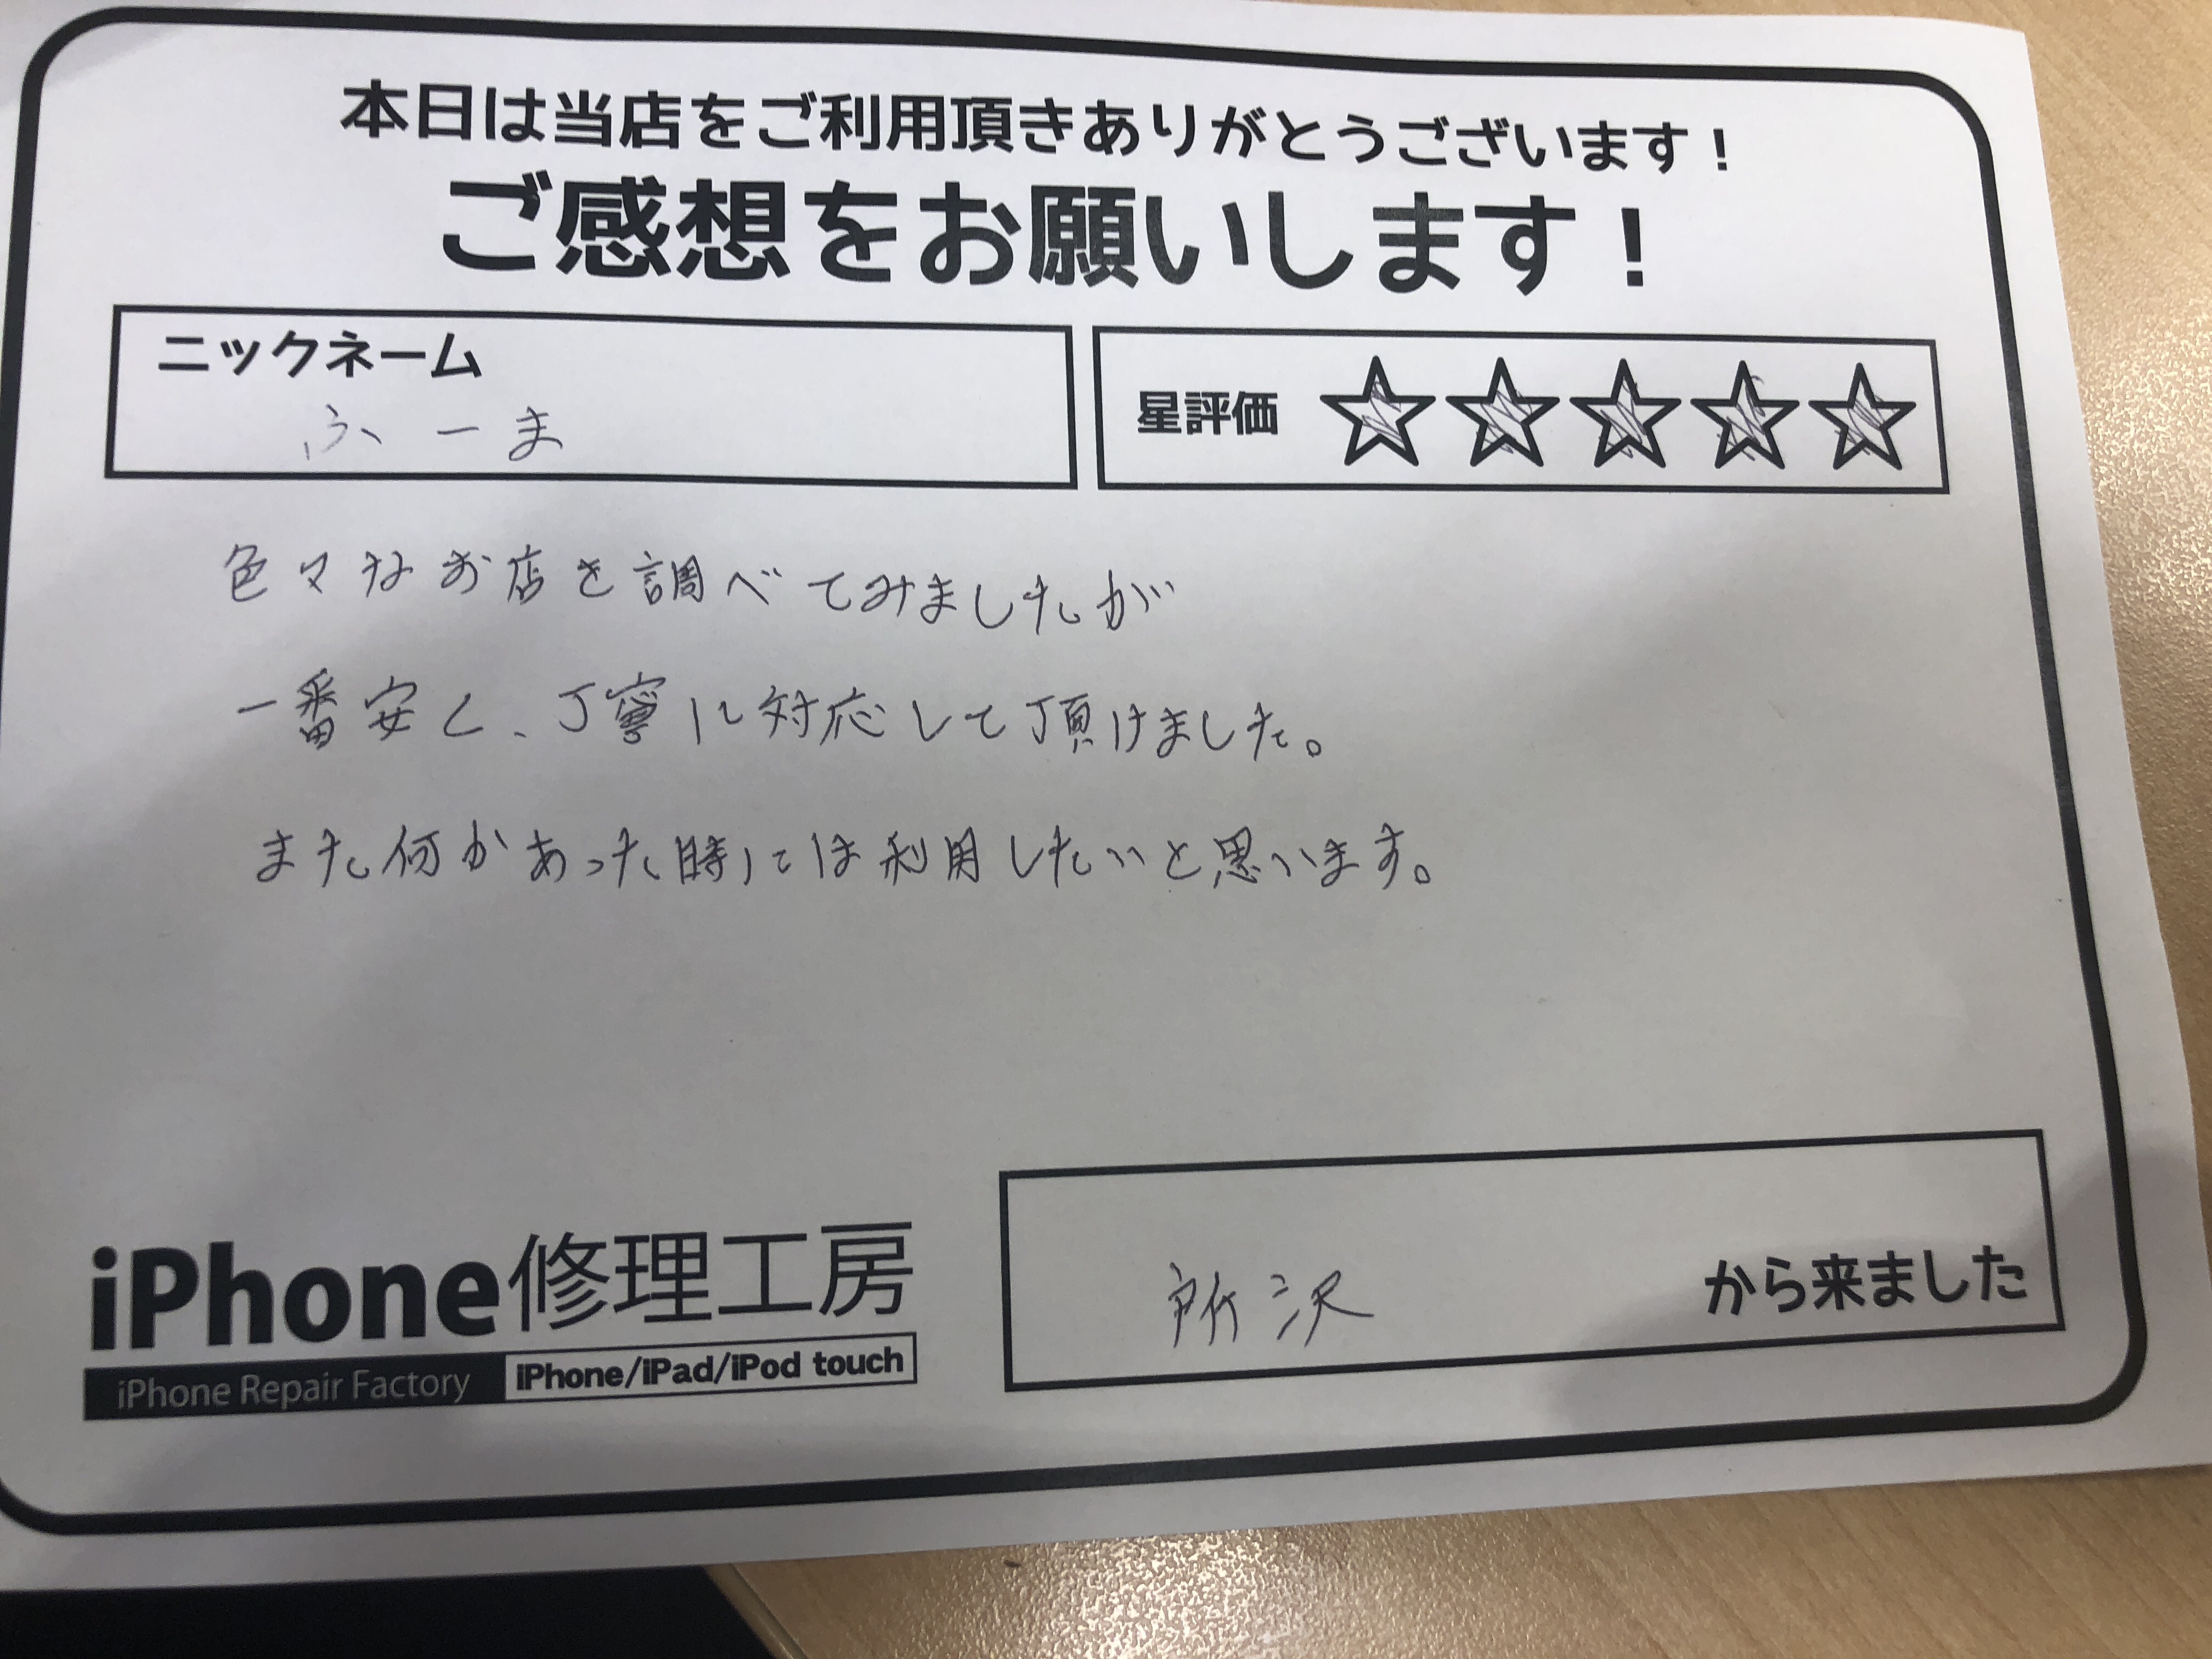 本日は当店をご利用頂きありがとうございます！
ご感想をお願いします！
ニックネーム
ふーま
星評価 ☆☆☆☆☆
色々なお店を調べてみましたが
一番安く、丁寧に対応して頂けました。
また何かあった時には利用したいと思います。
iPhone修理工房
iPhone Repair Factory iPhone/iPad/iPod touch
所沢 から来ました